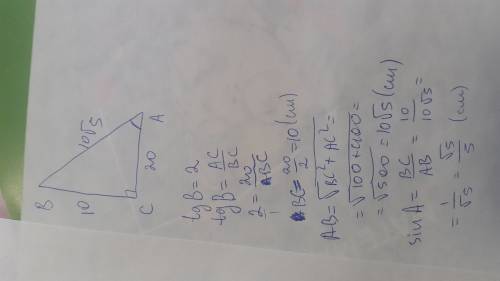 B
10
C
20
A
10√5
tg B = 2
tg B = AC/BC
2/1 = 20/BC
BC = 20/2 = 10 (см)
AB = √BC² + AC² =
= √100 + 400 =
= √500 = 10√5 (см)
sin A = BC/AB = 10/10√5 =
= 1/√5 = √5/5 (см)